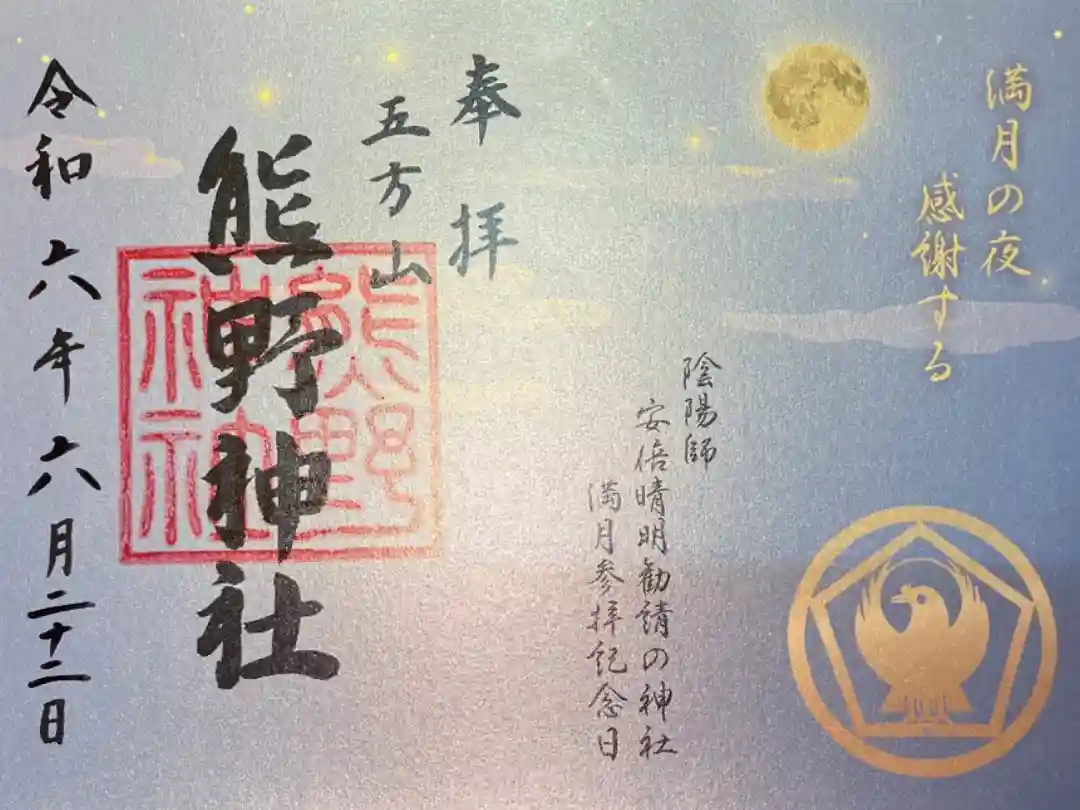 満月の夜
感謝する
陰陽師
安倍晴明勧請の神社
満月参拝記念日
奉拝
五方山
熊野神社
熊野
神社
令和六年六月二十二日